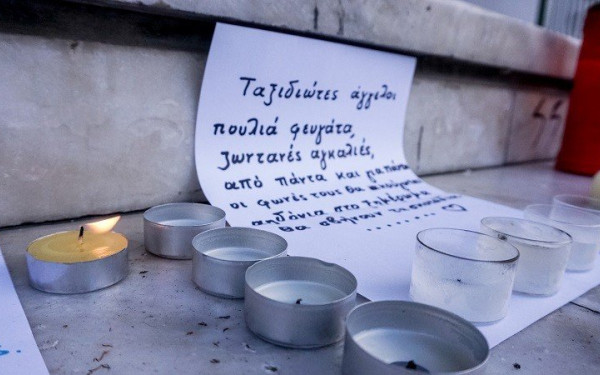 Ταξιδιώτες άγγελοι
πουλιά φευγάτα,
ζωντανές αγκαλιές,
από πάντα και για πάντα
οι φωνές τους θα
αηδόνια στο
θα σβήνουν τα